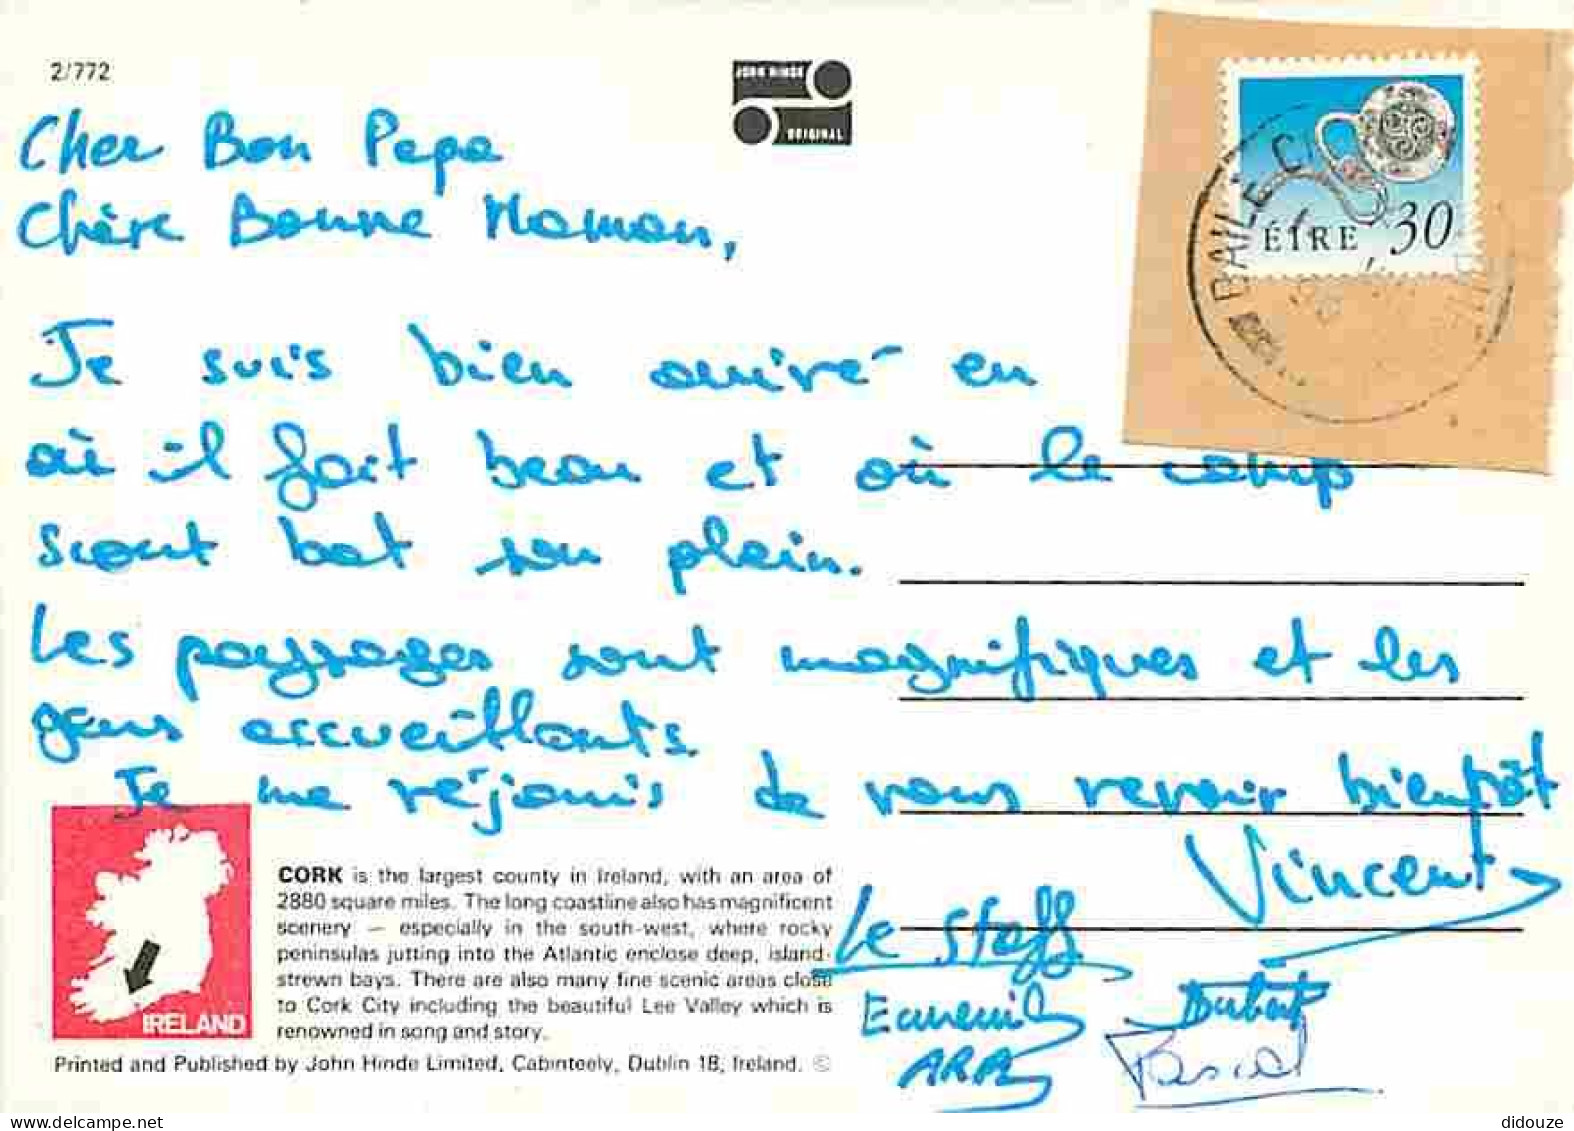 2/772
JOHN HINDE
ORIGINAL
ÉIRE 30
BAILE
Cher Bon Papa
Chère Bonne Maman,
Je suis bien arrivé en
où il fait beau et où le camp
scout bat son plein.
Les paysages sont magnifiques et les
gens accueillants.
Je me réjouis de vous revoir bientôt
Vincent
Le Staff
Ecureuil
ARA
Pascal
IRELAND
CORK is the largest county in Ireland, with an area of
2880 square miles. The long coastline also has magnificent
scenery – especially in the south-west, where rocky
peninsulas jutting into the Atlantic enclose deep, island-
strewn bays. There are also many fine scenic areas close
to Cork City including the beautiful Lee Valley which is
renowned in song and story.
Printed and Published by John Hinde Limited, Cabinteely, Dublin 18, Ireland. ©
didouze